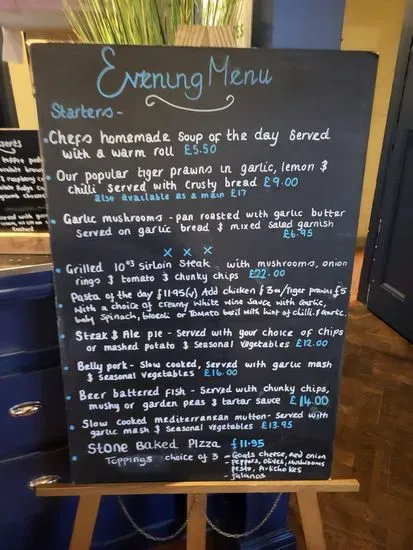 Evening Menu
Starters-
Chefs homemade soup of the day served
with a warm roll £5.50
Our popular tiger prawns in garlic, lemon &
chilli served with crusty bread £9.00
also available as a main £17
Garlic mushrooms - pan roasted with garlic butter
Served on garlic bread & mixed salad garnish
£6.95
x x x
Grilled 10oz Sirloin Steak - with mushrooms, onion
rings & tomato & chunky chips £22.00
Pasta of the day £11.95(v) Add chicken £3.00/Tiger prawns £5
with a choice of creamy white wine sauce with garlic,
baby spinach, or Tomato basil with hint of chilli & garlic.
Steak & Ale pie - Served with your choice of chips
or mashed potato & Seasonal vegetables £12.00
Belly pork - slow cooked, served with garlic mash
& seasonal vegetables £16.00
Beer battered fish - Served with chunky chips,
mushy or garden peas & tartar sauce £14.00
Slow cooked mediterranean mutton - Served with
garlic mash & Seasonal vegetables £13.95
Stone Baked Pizza £11.95
Toppings choice of 3 - Goats cheese, red onion
- Peppers, olives, Mushrooms
Pesto, Artichokes
- Jalapenos